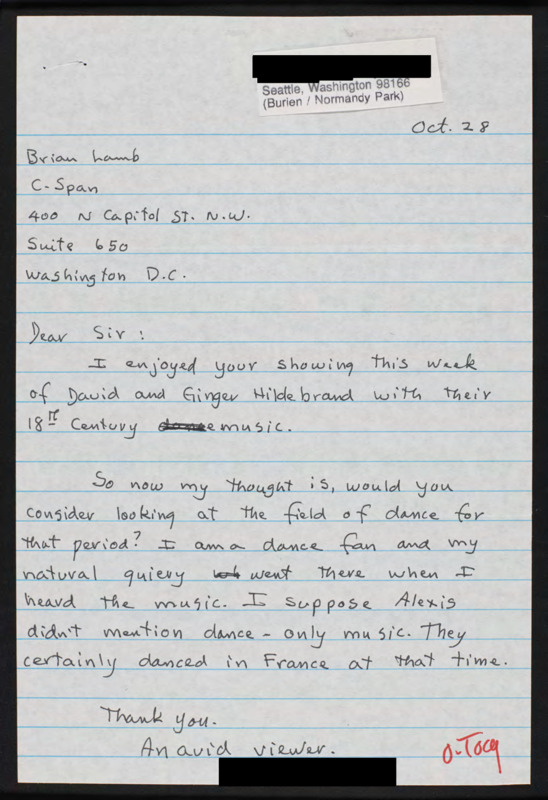 Seattle, Washington 98166
(Burien / Normandy Park)
Oct. 28
Brian Lamb
C-Span
400 N Capitol St. N.W.
Suite 650
Washington D.C.
Dear Sir:
I enjoyed your showing this week
of David and Ginger Hildebrand with their
18th Century music.
So now my thought is, would you
consider looking at the field of dance for
that period? I am a dance fan and my
natural quiery went there when I
heard the music. I suppose Alexis
didn't mention dance - only music. They
certainly danced in France at that time.
Thank you.
An avid viewer.
O-Tocq